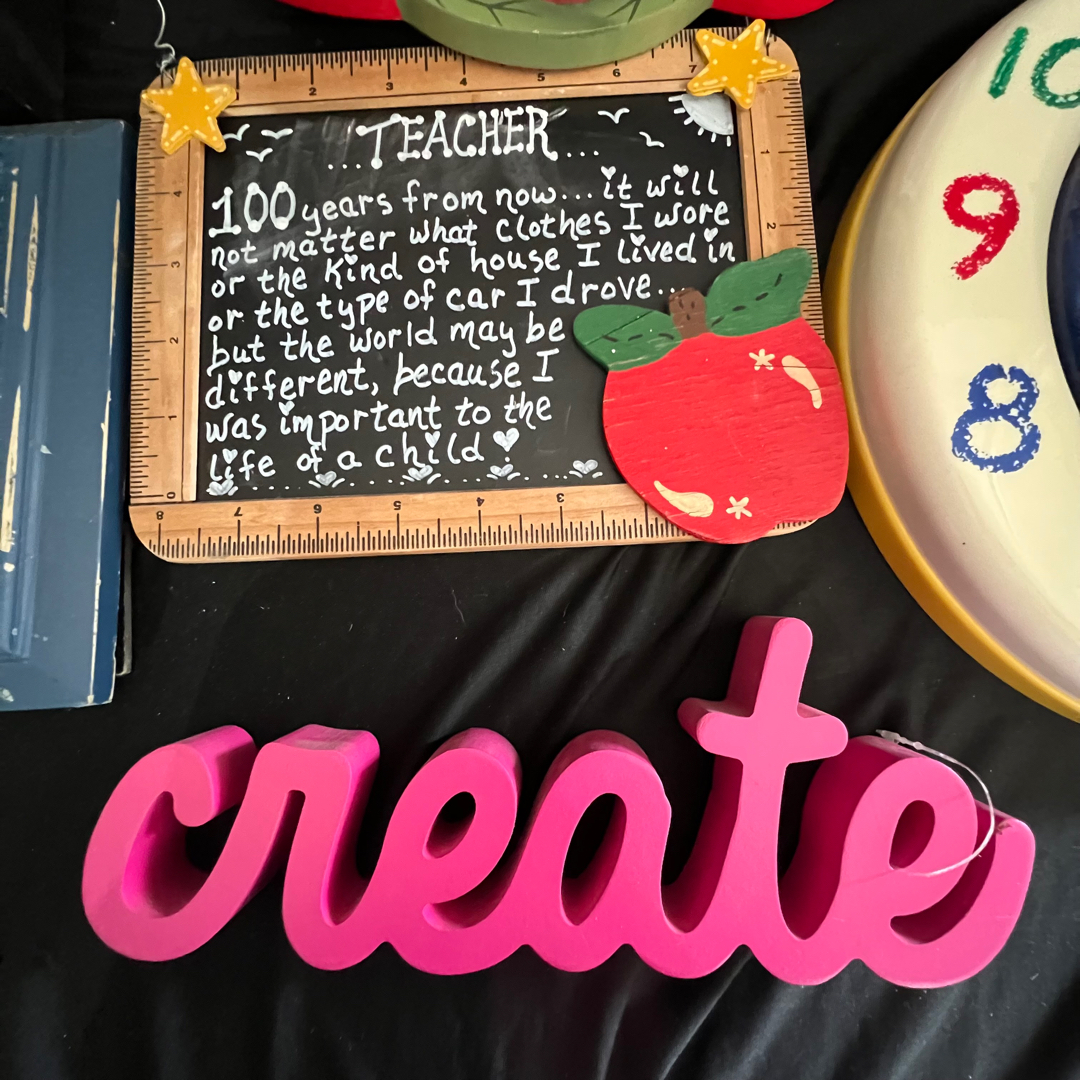 2 4 5 6 7
...TEACHER...
100 years from now... it will
not matter what clothes I wore
or the kind of house I lived in
or the type of car I drove...
but the world may be
different, because I
was important to the
life of a child!
4
3
2
1
0
1
2
8 7 6 5 4 3
10
9
8
create